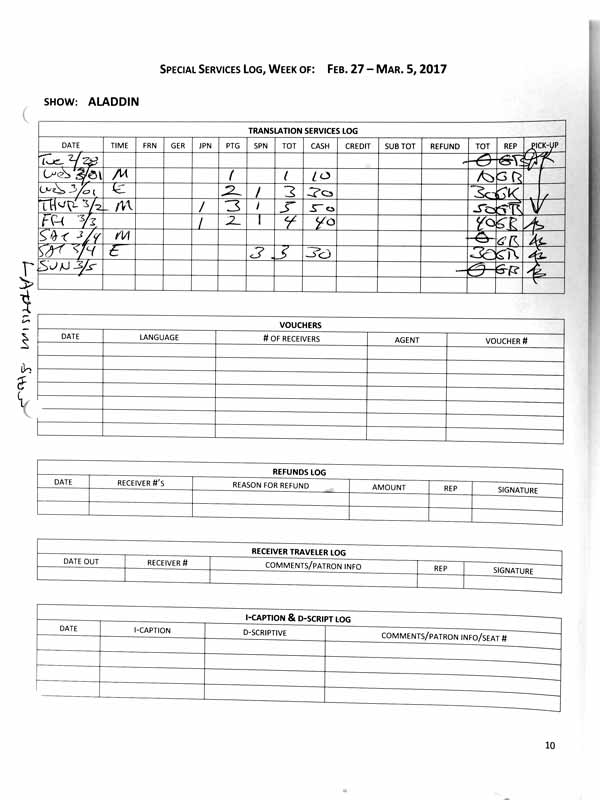 SPECIAL SERVICES LOG, WEEK OF: FEB. 27 – MAR. 5, 2017
SHOW: ALADDIN
TRANSLATION SERVICES LOG
DATE TIME FRN GER JPN PTG SPN TOT CASH CREDIT SUB TOT REFUND TOT REP PICK-UP
Tue 2/28 0 GB
Wed 3/01 M 1 1 10 10 GB
Wed 3/01 E 2 1 3 30 30 GK
THUR 3/2 M 1 3 1 5 50 50 GB
FRI 3/3 1 2 1 4 40 40 GB
SAT 3/4 M 0 GB
SAT 3/4 E 3 3 30 30 GB
SUN 3/5 0 GB
VOUCHERS
DATE LANGUAGE # OF RECEIVERS AGENT VOUCHER #
REFUNDS LOG
DATE RECEIVER #'S REASON FOR REFUND AMOUNT REP SIGNATURE
RECEIVER TRAVELER LOG
DATE OUT RECEIVER # COMMENTS/PATRON INFO REP SIGNATURE
I-CAPTION & D-SCRIPT LOG
DATE I-CAPTION D-SCRIPTIVE COMMENTS/PATRON INFO/SEAT #
10